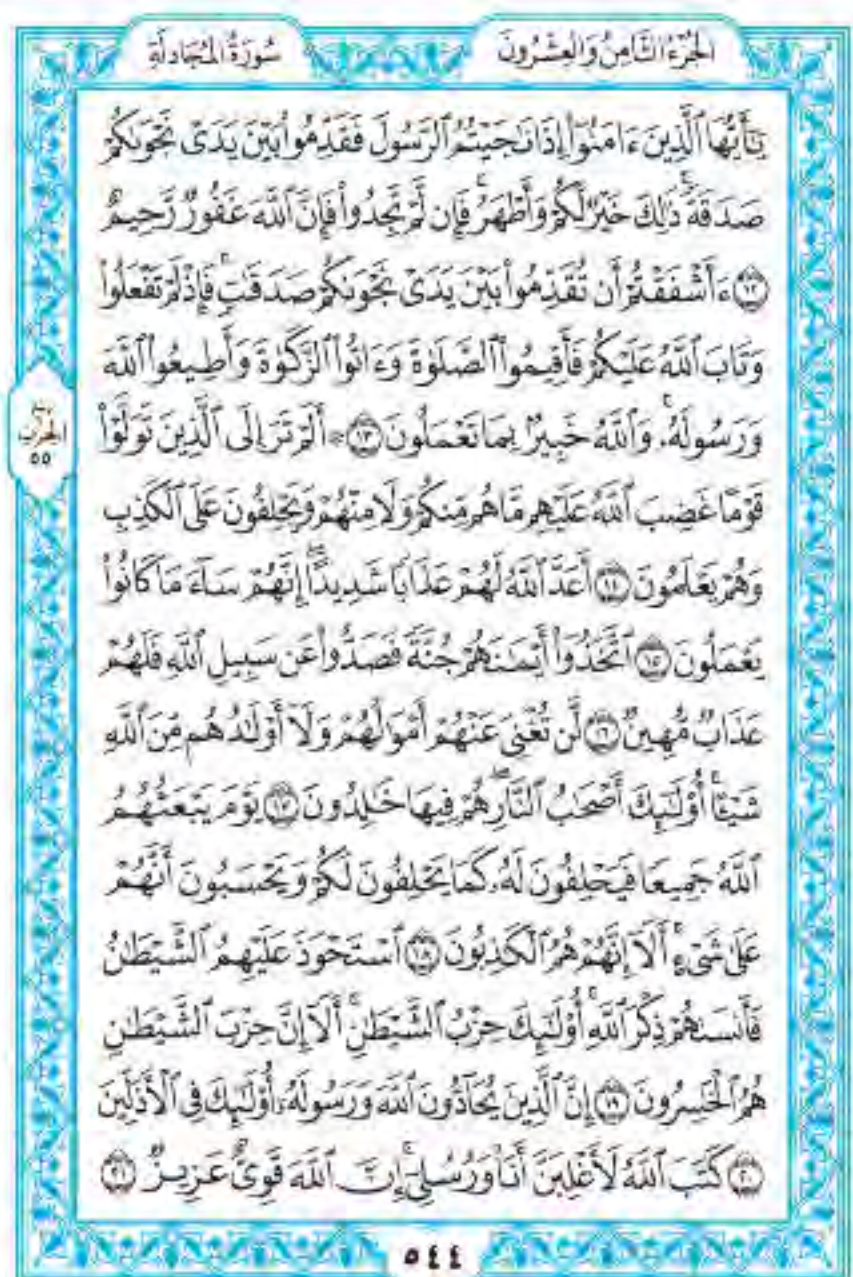 الجُزْءُ الثَّامِنُ وَالعِشْرُونَ
سُورَةُ المُجَادلَةِ
يَٰٓأَيُّهَا ٱلَّذِينَ ءَامَنُوٓا۟ إِذَا نَٰجَيْتُمُ ٱلرَّسُولَ فَقَدِّمُوا۟ بَيْنَ يَدَىْ نَجْوَىٰكُمْ
صَدَقَةً ۚ ذَٰلِكَ خَيْرٌ لَّكُمْ وَأَطْهَرُ ۚ فَإِن لَّمْ تَجِدُوا۟ فَإِنَّ ٱللَّهَ غَفُورٌ رَّحِيمٌ
١٢ ءَأَشْفَقْتُمْ أَن تُقَدِّمُوا۟ بَيْنَ يَدَىْ نَجْوَىٰكُمْ صَدَقَٰتٍ ۚ فَإِذْ لَمْ تَفْعَلُوا۟
وَتَابَ ٱللَّهُ عَلَيْكُمْ فَأَقِيمُوا۟ ٱلصَّلَوٰةَ وَءَاتُوا۟ ٱلزَّكَوٰةَ وَأَطِيعُوا۟ ٱللَّهَ
وَرَسُولَهُۥ ۚ وَٱللَّهُ خَبِيرٌۢ بِمَا تَعْمَلُونَ ١٣ ۞ أَلَمْ تَرَ إِلَى ٱلَّذِينَ تَوَلَّوْا۟
قَوْمًا غَضِبَ ٱللَّهُ عَلَيْهِم مَّا هُم مِّنكُمْ وَلَا مِنْهُمْ وَيَحْلِفُونَ عَلَى ٱلْكَذِبِ
وَهُمْ يَعْلَمُونَ ١٤ أَعَدَّ ٱللَّهُ لَهُمْ عَذَابًا شَدِيدًا ۖ إِنَّهُمْ سَآءَ مَا كَانُوا۟
يَعْمَلُونَ ١٥ ٱتَّخَذُوٓا۟ أَيْمَٰنَهُمْ جُنَّةً فَصَدُّوا۟ عَن سَبِيلِ ٱللَّهِ فَلَهُمْ
عَذَابٌ مُّهِينٌ ١٦ لَّن تُغْنِىَ عَنْهُمْ أَمْوَٰلُهُمْ وَلَآ أَوْلَٰدُهُم مِّنَ ٱللَّهِ
شَيْـًٔا ۚ أُو۟لَٰٓئِكَ أَصْحَٰبُ ٱلنَّارِ ۖ هُمْ فِيهَا خَٰلِدُونَ ١٧ يَوْمَ يَبْعَثُهُمُ
ٱللَّهُ جَمِيعًا فَيَحْلِفُونَ لَهُۥ كَمَا يَحْلِفُونَ لَكُمْ ۖ وَيَحْسَبُونَ أَنَّهُمْ
عَلَىٰ شَىْءٍ ۚ أَلَآ إِنَّهُمْ هُمُ ٱلْكَٰذِبُونَ ١٨ ٱسْتَحْوَذَ عَلَيْهِمُ ٱلشَّيْطَٰنُ
فَأَنسَىٰهُمْ ذِكْرَ ٱللَّهِ ۚ أُو۟لَٰٓئِكَ حِزْبُ ٱلشَّيْطَٰنِ ۚ أَلَآ إِنَّ حِزْبَ ٱلشَّيْطَٰنِ
هُمُ ٱلْخَٰسِرُونَ ١٩ إِنَّ ٱلَّذِينَ يُحَآدُّونَ ٱللَّهَ وَرَسُولَهُۥٓ أُو۟لَٰٓئِكَ فِى ٱلْأَذَلِّينَ
٢٠ كَتَبَ ٱللَّهُ لَأَغْلِبَنَّ أَنَا۠ وَرُسُلِىٓ ۚ إِنَّ ٱللَّهَ قَوِىٌّ عَزِيزٌ ٢١
الحزب
٥٥
٥٤٤